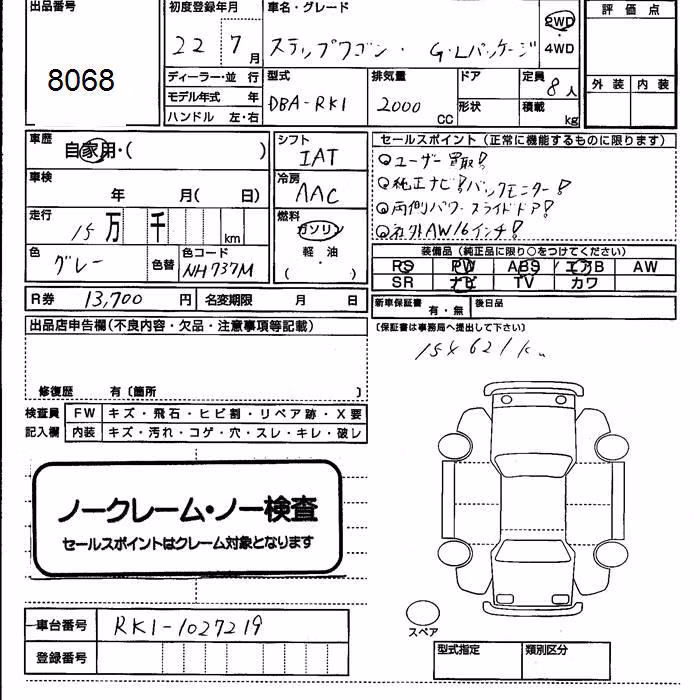 出品番号
8068
初度登録年月
22 7月
車名・グレード
ステップワゴン・ G・Lパッケージ
2WD
・
4WD
評価点
外装 内装
ディーラー・並行
モデル年式 年
ハンドル 左・右
型式
DBA-RK1
排気量
2000 CC
ドア
形状
定員
8人
積載
kg
車歴
自家用・( )
シフト
IAT
車検
年 月( 日)
冷房
AAC
走行
15万 千 km
燃料
ガソリン
軽油
( ・ )
色
グレー
色替
色コード
NH737M
セールスポイント(正常に機能するものに限ります)
ユーザー買取!
純正ナビ!バックモニター!
両側パワースライドドア!
社外AW16インチ!
装備品(純正品に限り○をつけてください)
PS PW ABS エアB AW
SR ナビ TV カワ
R券 13,700円 名変期限 月 日
新車保証書 有・無 後日品
出品店申告欄(不良内容・欠品・注意事項等記載)
〔保証書は事務局へ提出して下さい〕
修復歴 有〔箇所 〕
検査員
記入欄
FW キズ・飛石・ヒビ割・リペア跡・X要
内装 キズ・汚れ・コゲ・穴・スレ・キレ・破レ
ノークレーム・ノー検査
セールスポイントはクレーム対象となります
車台番号 RK1-1027219
登録番号
スペア
型式指定 類別区分